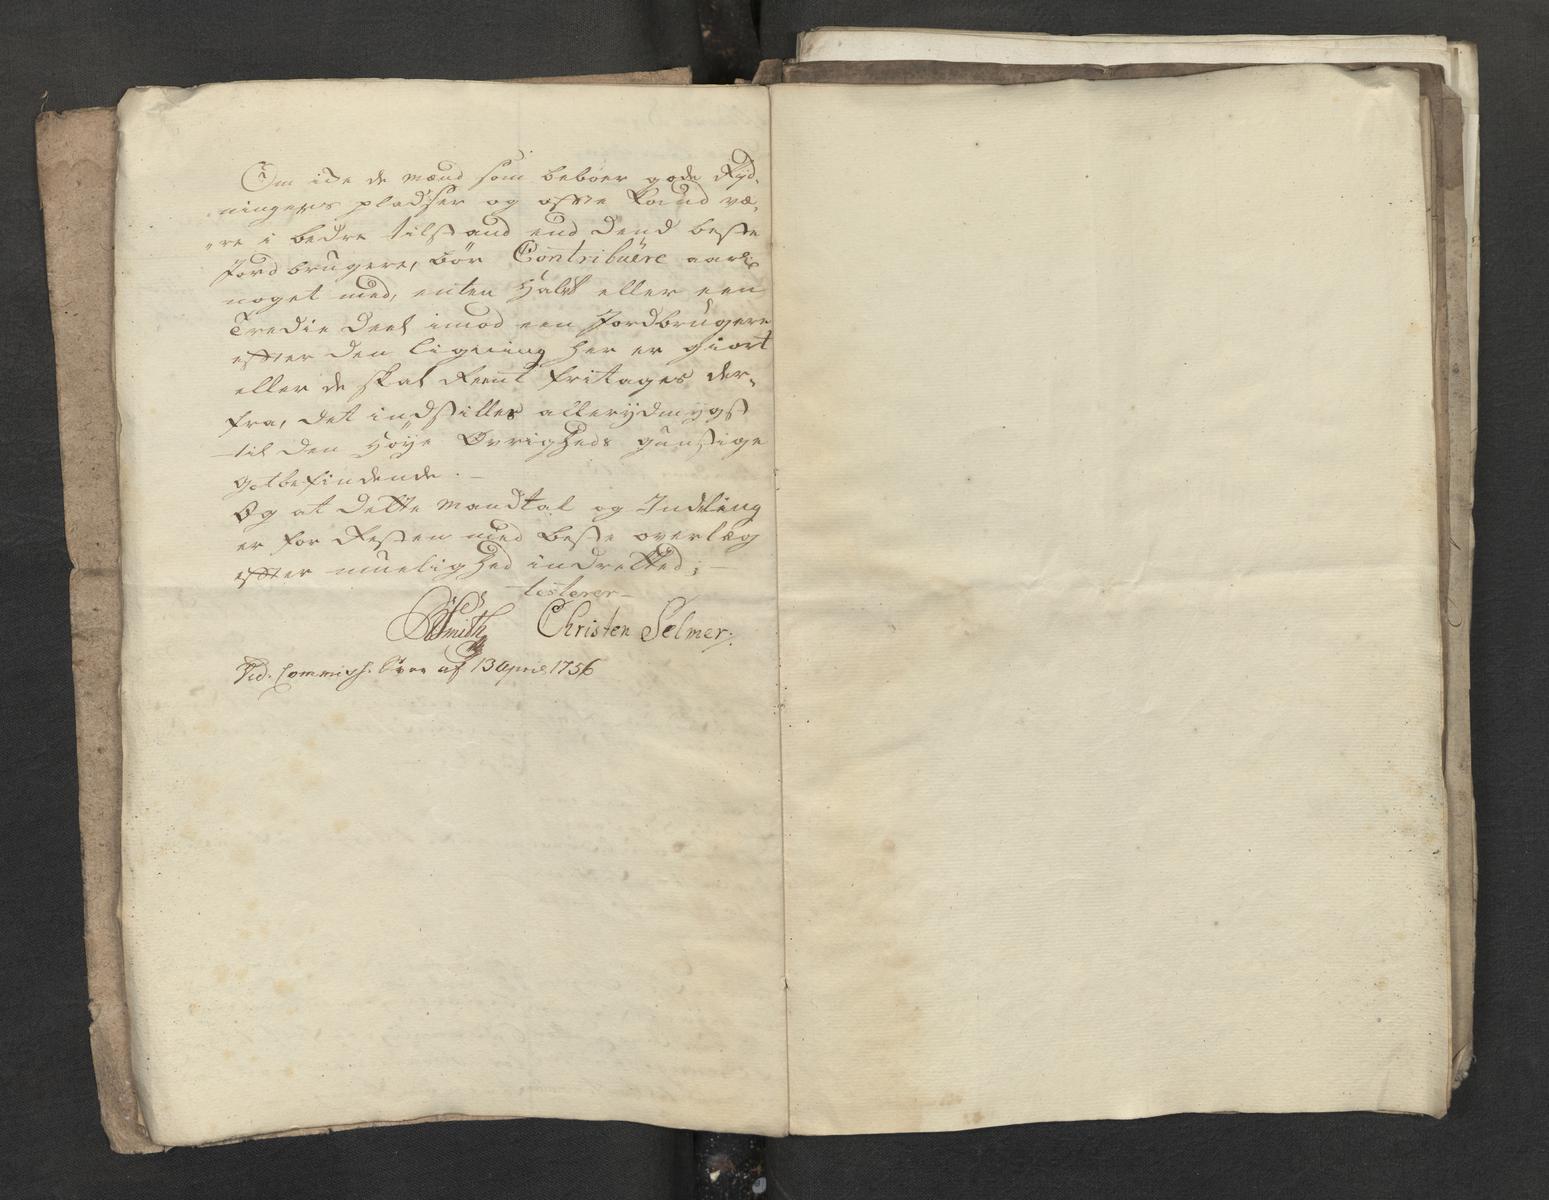 Om icke de mænd som beboer gode Ryd-
ningers pladser og offte kand væ-
re i bedre tilstand end dend beste
Jordbrugere, bør Contribuere aarl:
noget med, enten Halvt eller een
Tredie Deel imod een Jordbrugere
effter den ligning her er giort
eller de skal Reent fritages der-
fra, det indstilles allerydmygst
til den Høye Øvrigheds gunstige
gotbefindende. –
Og at dette mandtal og Indeling
er for Resten med beste overlæg
effter muelighed indretted; –
testerer –
Smith Christen Selmer.
Vid. Commiss: af 13 April 1756